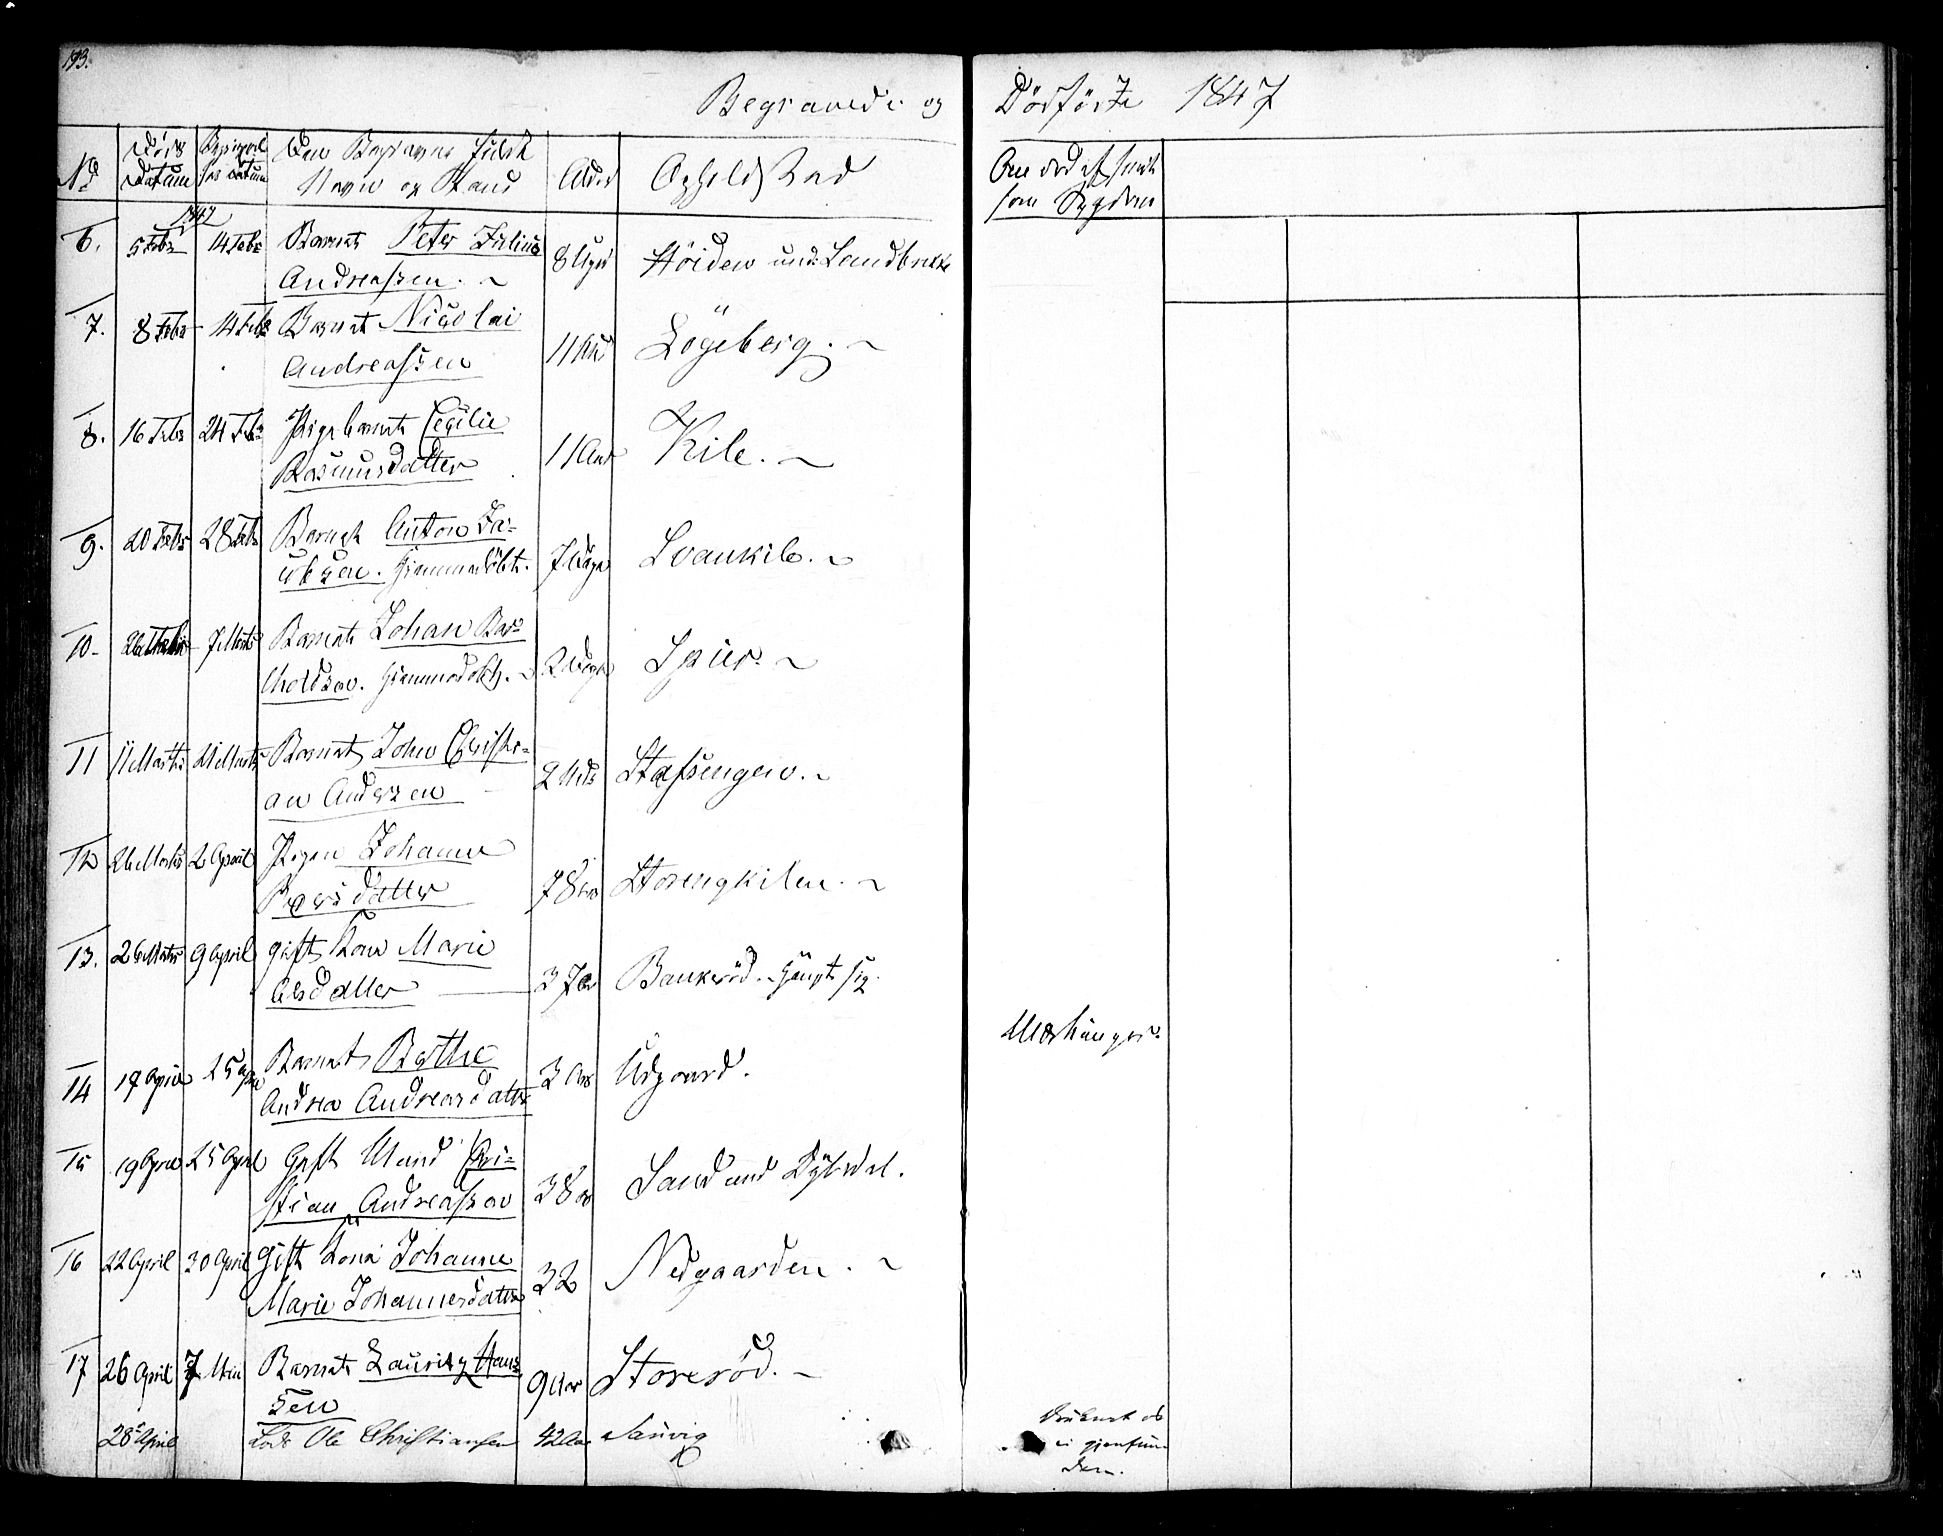 193.
Begravede og Dödfödte 1847
No Döds Datum Begravel ses Datum Den Begravnes fulde Navn og Stand Alder Opholds Sted Om död af smit som Sygdom
1847
6. 5 Febr 14 Febr Barnet Peter Julius
Andreassen. 8 Uger Höiden und: Sandbrekke
7. 8 Febr 14 Febr Barnet Nicolai
Andreassen 11 Lögeberg.
8. 16 Febr 24 Febr Pigebarnet Cecilie
Rasmusdatter 11 Aar Kile.
9. 20 Febr 28 Febr Barnet Anton Ja-
cobsen. hjemmedöbt. 7 Dage Svankil.
10 26 Febr 7 Marts Barnet Johan Bar-
tholdsen. hjemmedöbt. 2 Dage Spier.
11 11 Marts 21 Marts Barnet John Christi-
an Andersen 2 Stassengen.
12 26 Marts 2 April Pigen Johanne
Larsdatter 78 aar Storengkilen.
13. 26 Marts 9 April gift Kone Marie
Olsdatter 37 aar Bankeröd. hængt sig.
14 19 April 25 April Barnet Berthe
Andrea Andreasdatter 3 aar Udgaard.
15 19 April 25 April Gift Mand Chri-
stian Andreassen 38 aar Sand und
16 22 April 30 April gift Kone Johanne
Marie Johannesdatter 32 Nedgaarden.
17 26 April 7 Mai Barnet Lauritz Han-
sen 9 Aar Storeröd.
28 April Lods Ole Christiansen 42 Aar Sauvig druknet og
ei gjenfun-
den.